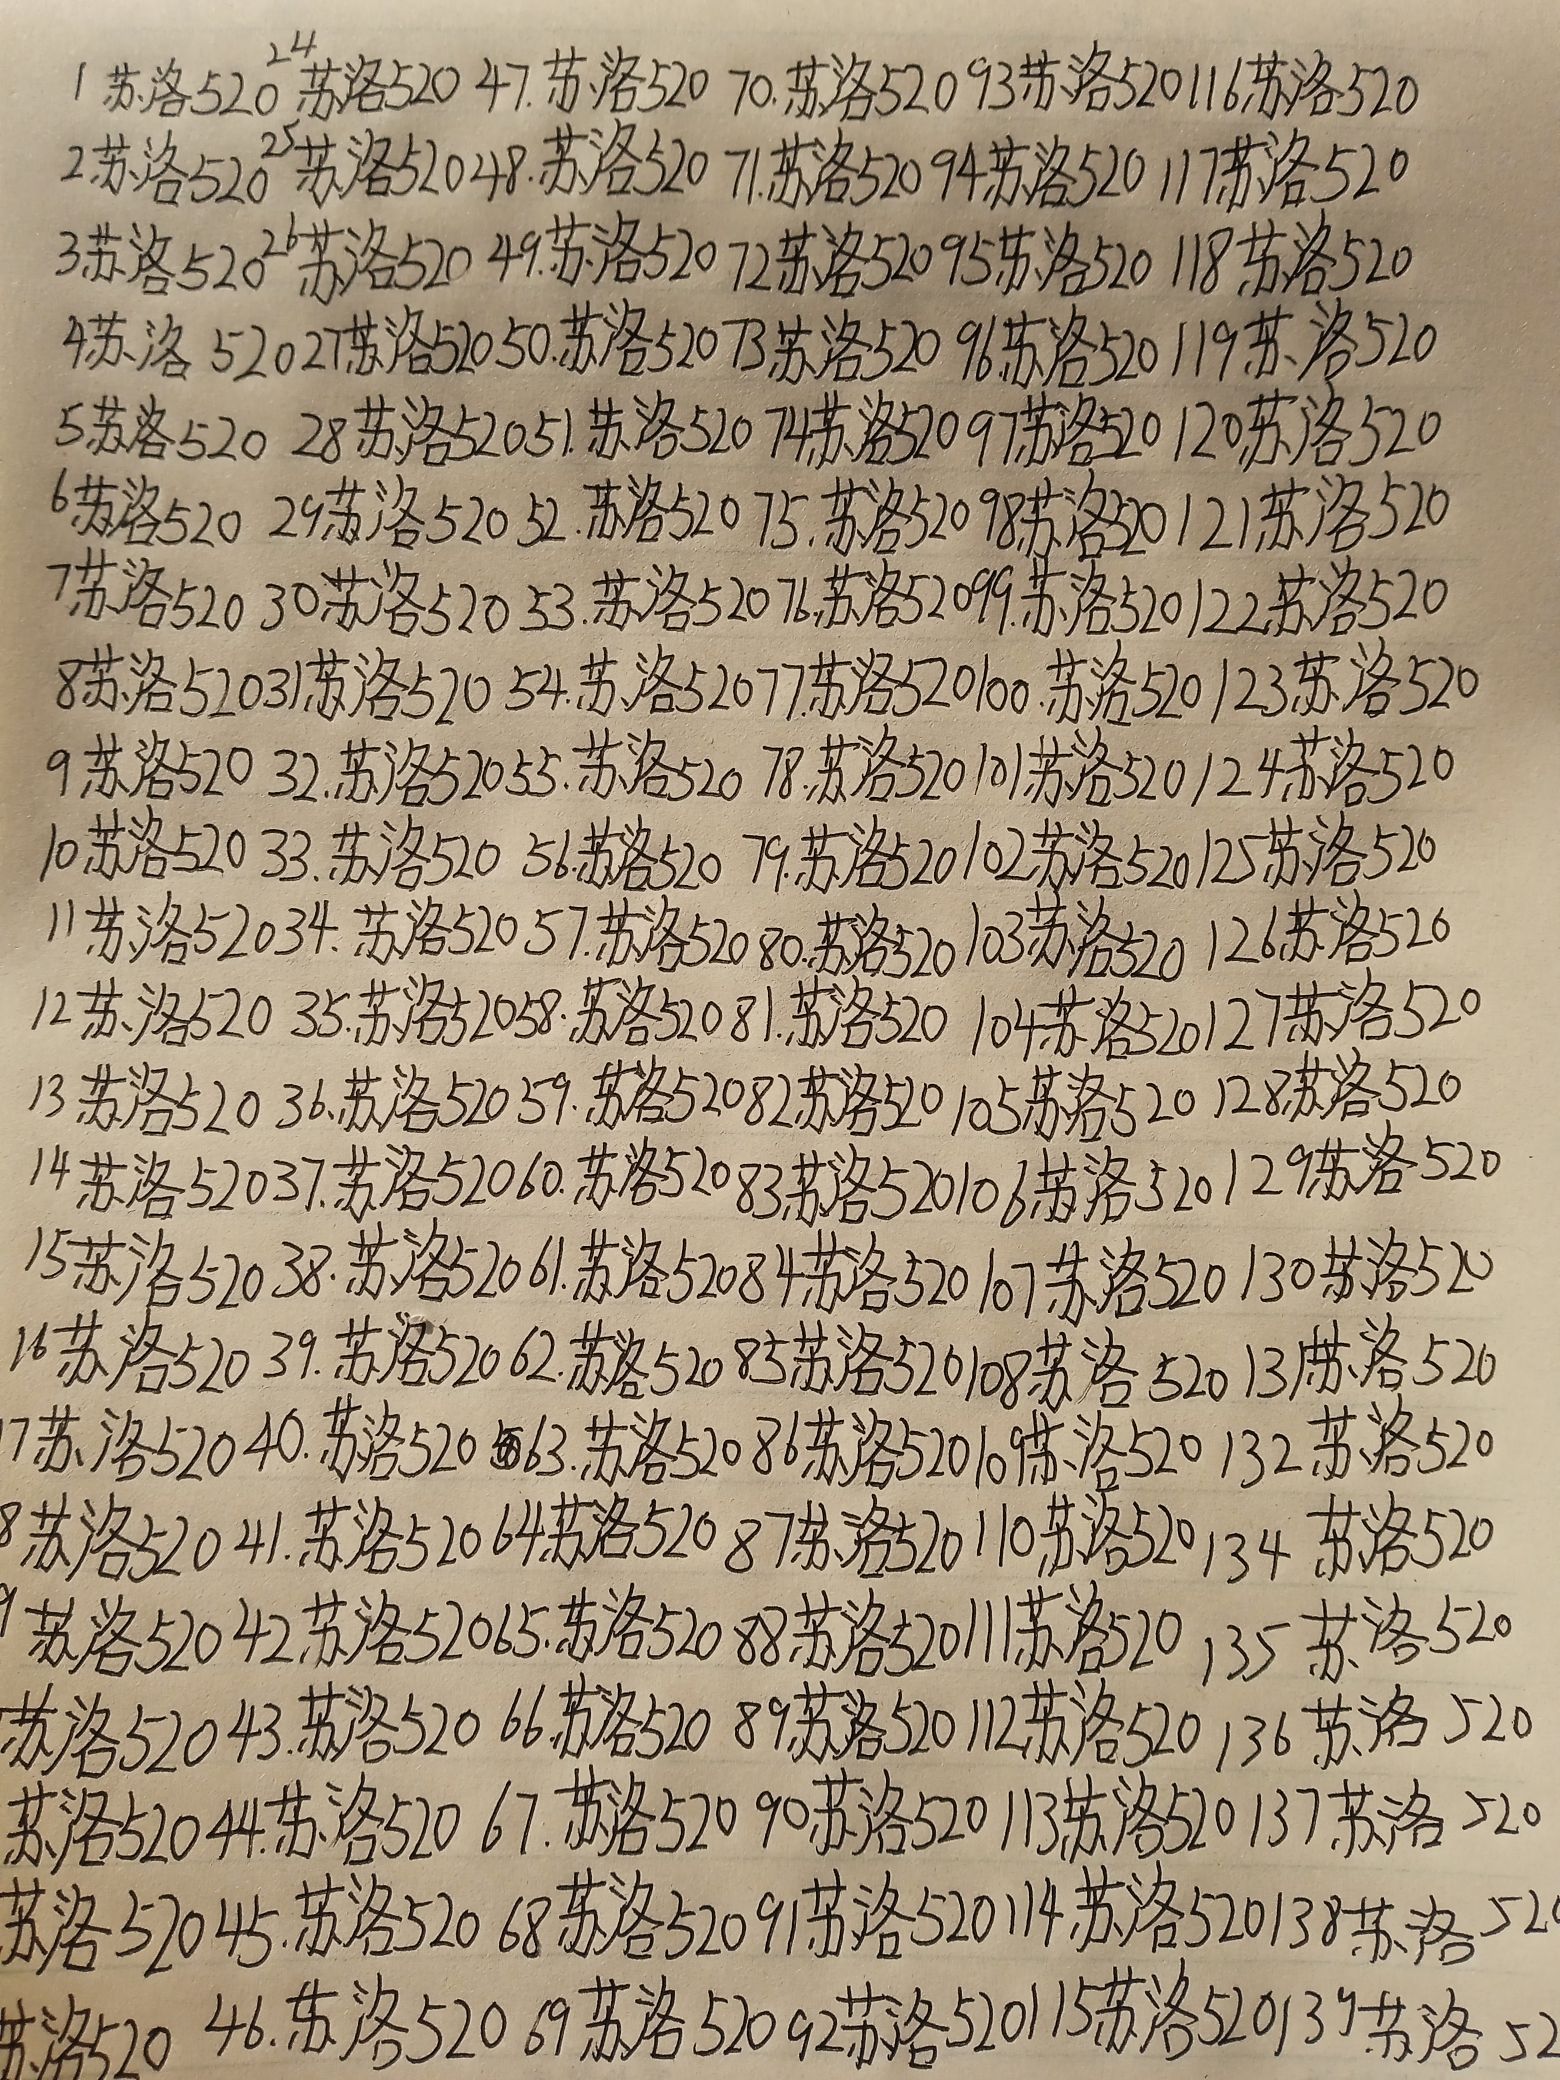 1 苏洛520 24 苏洛520 47. 苏洛520 70. 苏洛520 93 苏洛520 116 苏洛520
2 苏洛520 25 苏洛520 48. 苏洛520 71. 苏洛520 94 苏洛520 117 苏洛520
3 苏洛520 26 苏洛520 49. 苏洛520 72 苏洛520 95 苏洛520 118 苏洛520
4 苏洛520 27 苏洛520 50. 苏洛520 73 苏洛520 96 苏洛520 119 苏洛520
5 苏洛520 28 苏洛520 51. 苏洛520 74 苏洛520 97 苏洛520 120 苏洛520
6 苏洛520 29 苏洛520 52. 苏洛520 75. 苏洛520 98 苏洛520 121 苏洛520
7 苏洛520 30 苏洛520 53. 苏洛520 76. 苏洛520 99. 苏洛520 122 苏洛520
8 苏洛520 31 苏洛520 54. 苏洛520 77. 苏洛520 100. 苏洛520 123 苏洛520
9 苏洛520 32. 苏洛520 55. 苏洛520 78. 苏洛520 101 苏洛520 124 苏洛520
10 苏洛520 33. 苏洛520 56. 苏洛520 79. 苏洛520 102 苏洛520 125 苏洛520
11 苏洛520 34. 苏洛520 57. 苏洛520 80. 苏洛520 103 苏洛520 126 苏洛520
12 苏洛520 35. 苏洛520 58. 苏洛520 81. 苏洛520 104 苏洛520 127 苏洛520
13 苏洛520 36. 苏洛520 59. 苏洛520 82 苏洛520 105 苏洛520 128 苏洛520
14 苏洛520 37. 苏洛520 60. 苏洛520 83 苏洛520 106 苏洛520 129 苏洛520
15 苏洛520 38. 苏洛520 61. 苏洛520 84 苏洛520 107 苏洛520 130 苏洛520
16 苏洛520 39. 苏洛520 62. 苏洛520 85 苏洛520 108 苏洛520 131 苏洛520
17 苏洛520 40. 苏洛520 63. 苏洛520 86 苏洛520 109 苏洛520 132 苏洛520
8 苏洛520 41. 苏洛520 64 苏洛520 87 苏洛520 110 苏洛520 134 苏洛520
9 苏洛520 42 苏洛520 65. 苏洛520 88 苏洛520 111 苏洛520 135 苏洛520
苏洛520 43. 苏洛520 66 苏洛520 89 苏洛520 112 苏洛520 136 苏洛520
苏洛520 44. 苏洛520 67. 苏洛520 90 苏洛520 113 苏洛520 137 苏洛520
苏洛520 45. 苏洛520 68 苏洛520 91 苏洛520 114 苏洛520 138 苏洛520
苏洛520 46. 苏洛520 69 苏洛520 92 苏洛520 115 苏洛520 139 苏洛52